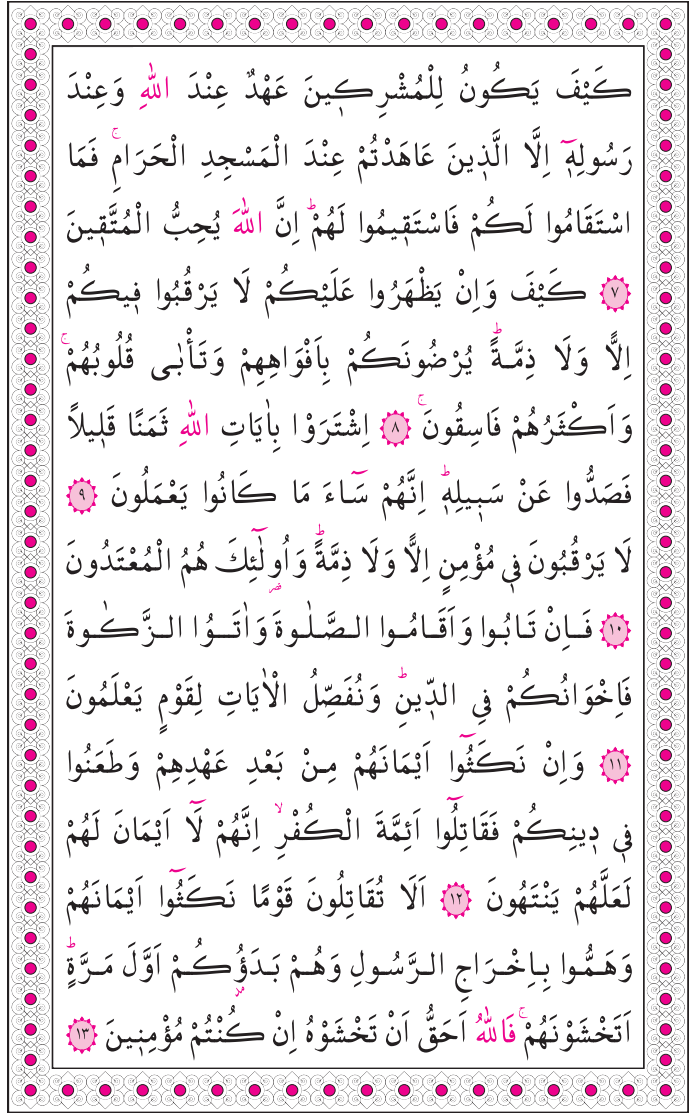 كَيْفَ يَكُونُ لِلْمُشْرِك۪ينَ عَهْدٌ عِنْدَ اللّٰهِ وَعِنْدَ
رَسُولِه۪ٓ اِلَّا الَّذ۪ينَ عَاهَدْتُمْ عِنْدَ الْمَسْجِدِ الْحَرَامِۚ فَمَا
اسْتَقَامُوا لَكُمْ فَاسْتَق۪يمُوا لَهُمْۜ اِنَّ اللّٰهَ يُحِبُّ الْمُتَّق۪ينَ
﴿٧﴾ كَيْفَ وَاِنْ يَظْهَرُوا عَلَيْكُمْ لَا يَرْقُبُوا ف۪يكُمْ
اِلًّا وَلَا ذِمَّةًۜ يُرْضُونَكُمْ بِاَفْوَاهِهِمْ وَتَأْبٰى قُلُوبُهُمْۚ
وَاَكْثَرُهُمْ فَاسِقُونَۚ ﴿٨﴾ اِشْتَرَوْا بِاٰيَاتِ اللّٰهِ ثَمَنًا قَل۪يلًا
فَصَدُّوا عَنْ سَب۪يلِه۪ۜ اِنَّهُمْ سَٓاءَ مَا كَانُوا يَعْمَلُونَ ﴿٩﴾
لَا يَرْقُبُونَ ف۪ي مُؤْمِنٍ اِلًّا وَلَا ذِمَّةًۜ وَاُو۬لٰٓئِكَ هُمُ الْمُعْتَدُونَ
﴿١٠﴾ فَاِنْ تَابُوا وَاَقَامُوا الصَّلٰوةَ وَاٰتَوُا الزَّكٰوةَ
فَاِخْوَانُكُمْ فِي الدّ۪ينِۜ وَنُفَصِّلُ الْاٰيَاتِ لِقَوْمٍ يَعْلَمُونَ
﴿١١﴾ وَاِنْ نَكَثُٓوا اَيْمَانَهُمْ مِنْ بَعْدِ عَهْدِهِمْ وَطَعَنُوا
ف۪ي د۪ينِكُمْ فَقَاتِلُٓوا اَئِمَّةَ الْكُفْرِۙ اِنَّهُمْ لَٓا اَيْمَانَ لَهُمْ
لَعَلَّهُمْ يَنْتَهُونَ ﴿١٢﴾ اَلَا تُقَاتِلُونَ قَوْمًا نَكَثُٓوا اَيْمَانَهُمْ
وَهَمُّوا بِاِخْرَاجِ الرَّسُولِ وَهُمْ بَدَؤُ۫كُمْ اَوَّلَ مَرَّةٍۜ
اَتَخْشَوْنَهُمْۚ فَاللّٰهُ اَحَقُّ اَنْ تَخْشَوْهُ اِنْ كُنْتُمْ مُؤْمِن۪ينَ ﴿١٣﴾